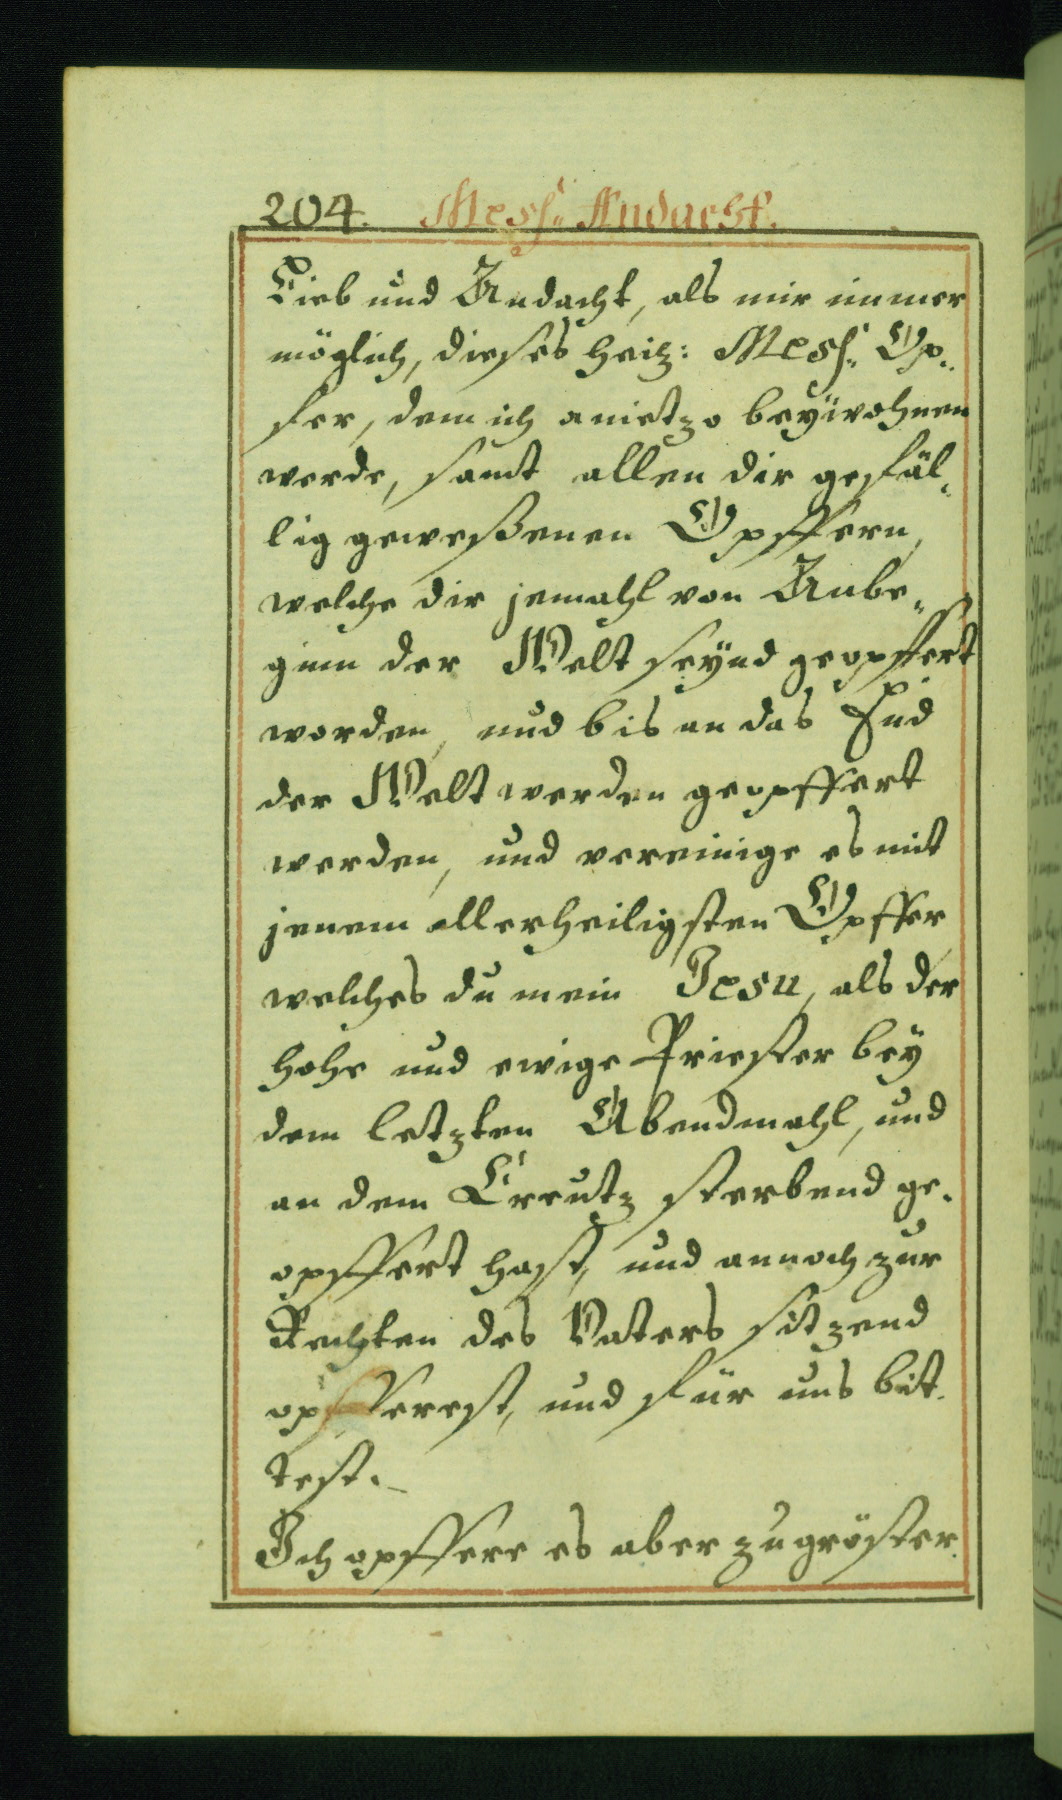 204. Mess- Andacht.
Lieb und Andacht, als mir immer
möglich, dieses heil: Mess- Op-
fer, dem ich anietzo beÿwohnen
werde, samt allen dir gefäl-
lig geweßenen Opffern,
welche dir jemahl von Anbe-
ginn der Welt seÿnd geopffert
worden, und bis an das End
der Welt werden geopffert
werden, und vereinige es mit
jenem allerheiligsten Opffer
welches du mein Jesu, als der
hohe und ewige Priester beÿ
dem letzten Abendmahl, und
an dem Creutz sterbend ge-
opffert hast, und annoch zur
Rechten des Vaters sitzend
opfferest, und für uns bit-
test.
Ich opffere es aber zu gröster